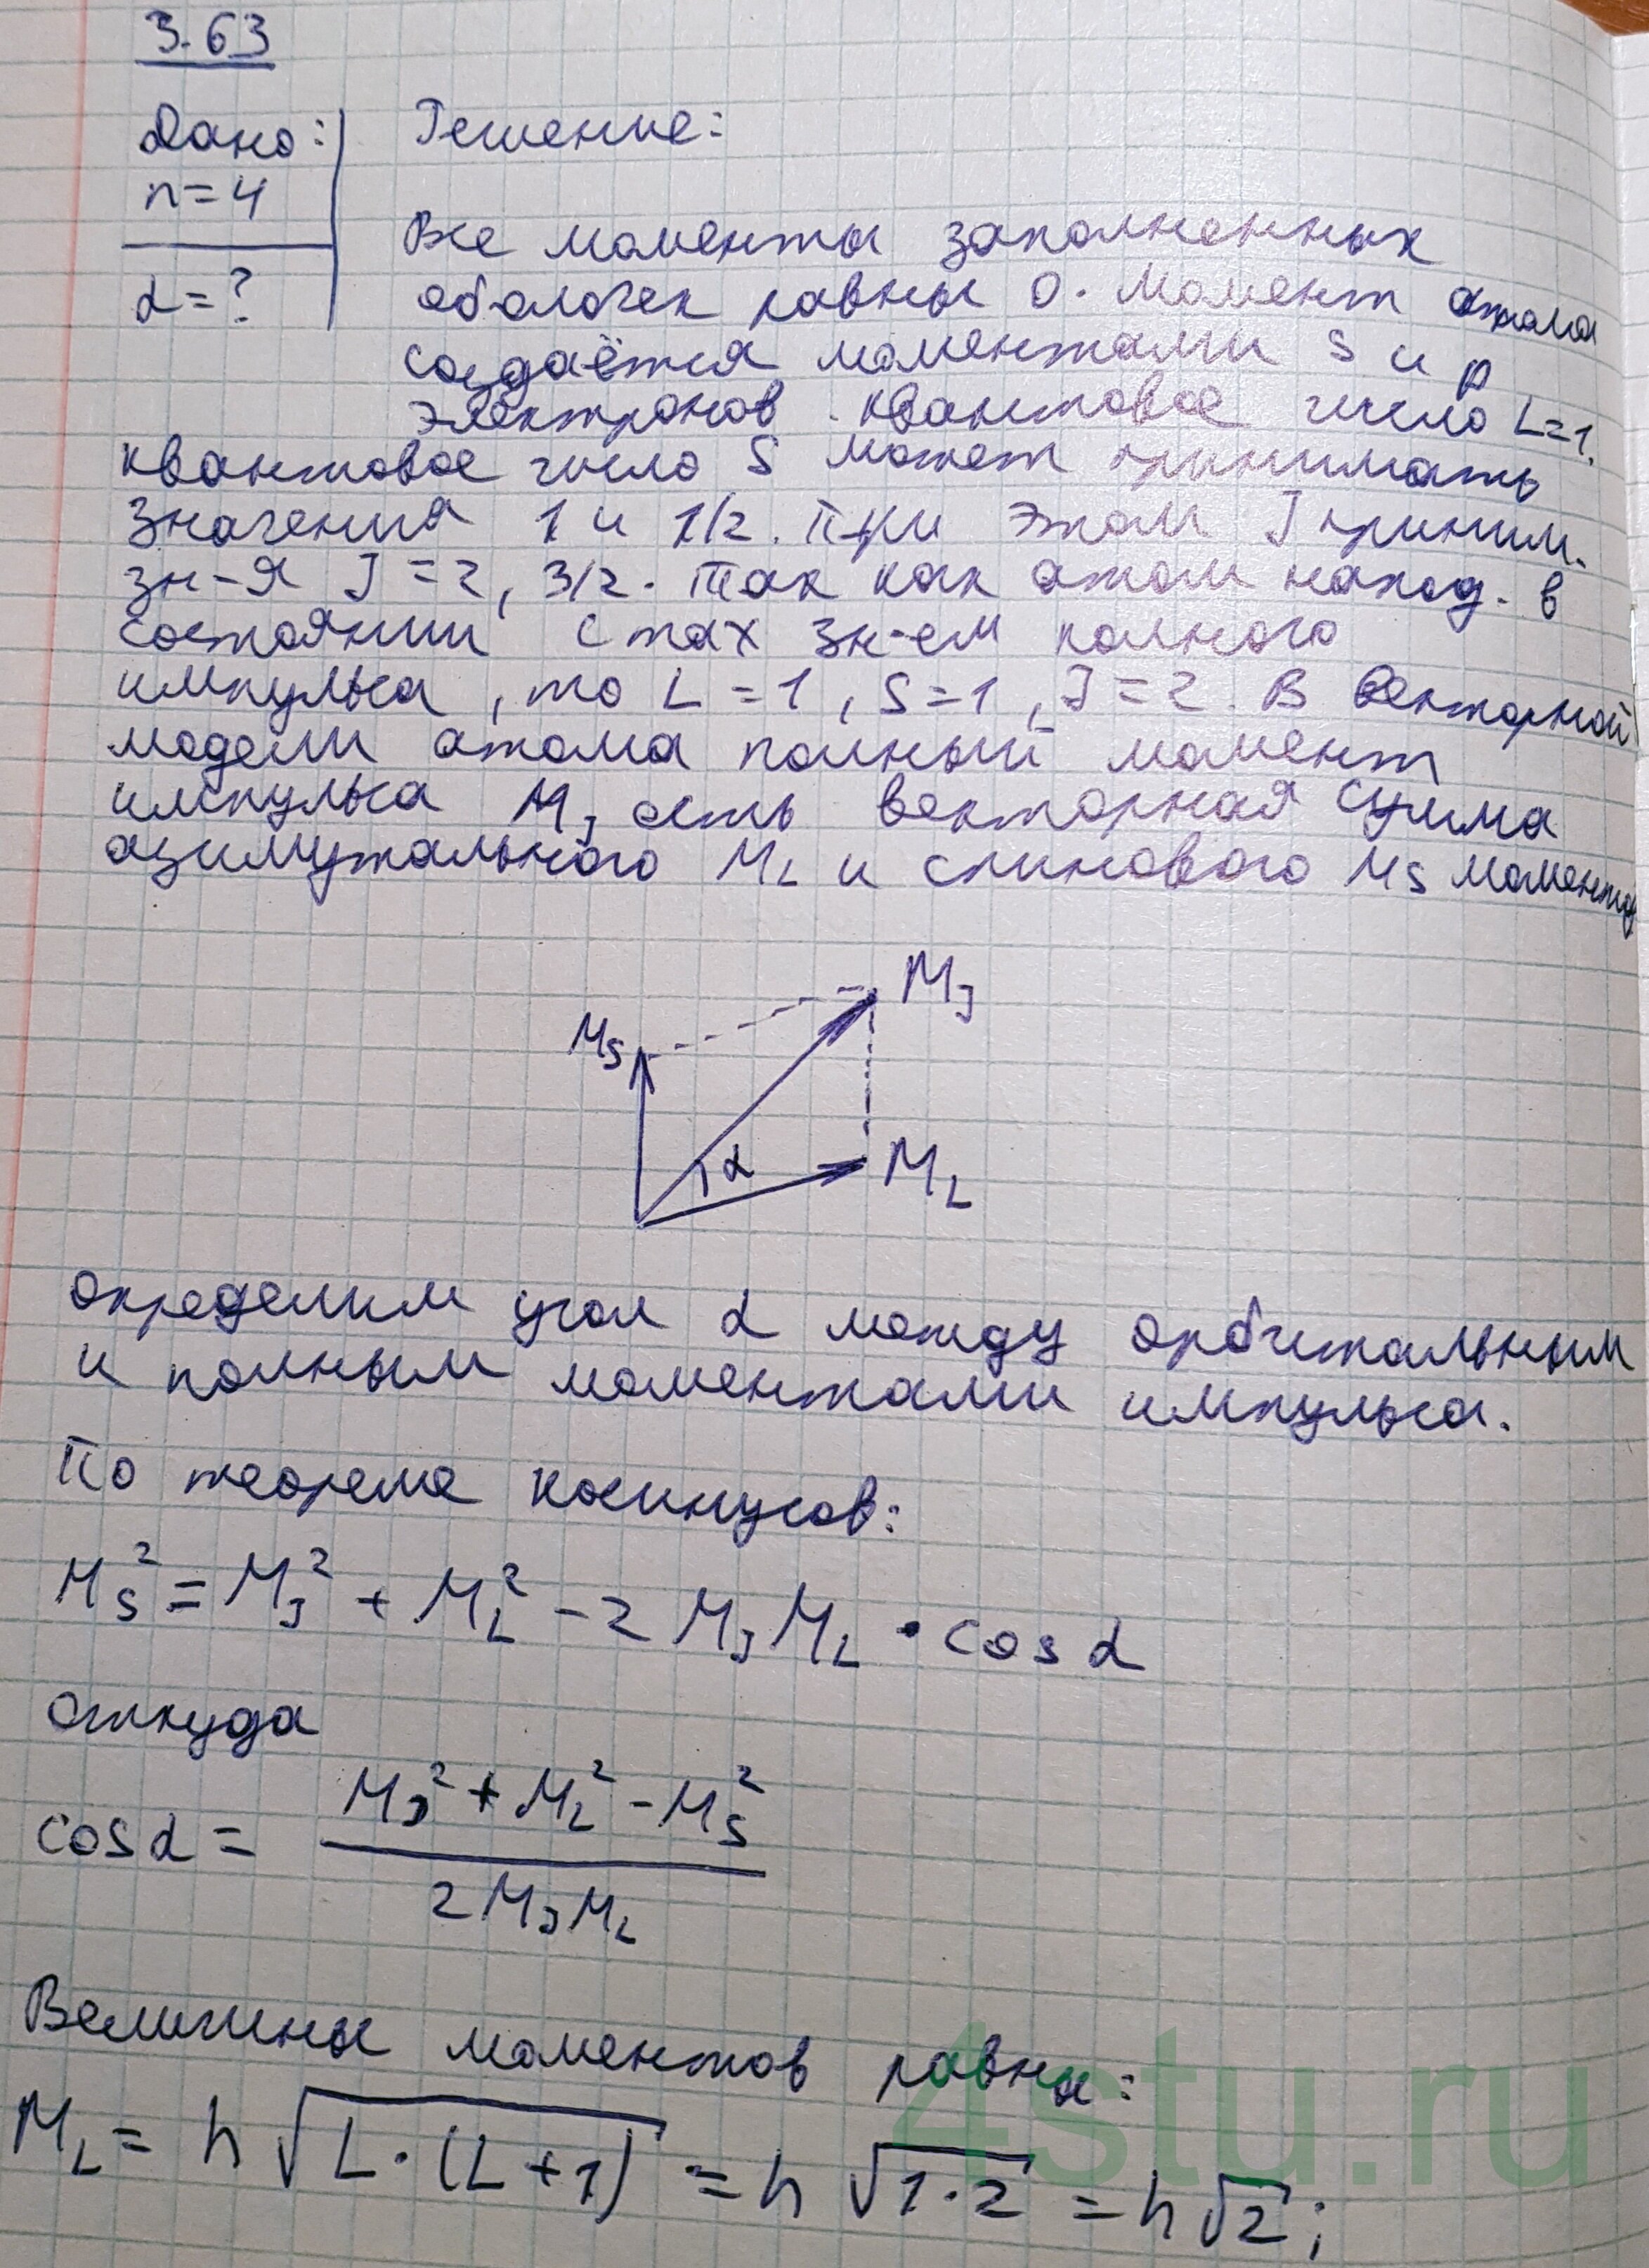 3.63
Дано:
n=4
α=?
Решение:
Все моменты заполненных
оболочек равны 0. Момент атома
создаётся моментами s и p
электронов. квантовое число L=1.
квантовое число S может принимать
значения 1 и 1/2. При этом J приним.
зн-я J=2, 3/2. Так как атом наход. в
состоянии с max зн-ем полного
импульса, то L=1, S=1, J=2. В векторной
модели атома полный момент
импульса M_J есть векторная сумма
азимутального M_L и спинового M_S момента
M_S
M_J
α
M_L
определим угол α между орбитальным
и полным моментами импульса.
По теореме косинусов:
M_S² = M_J² + M_L² - 2 M_J M_L · cos α
откуда
cos α = (M_J² + M_L² - M_S²) / (2 M_J M_L)
Величины моментов равны:
M_L = h √(L·(L+1)) = h √(1·2) = h √2;
4stu.ru